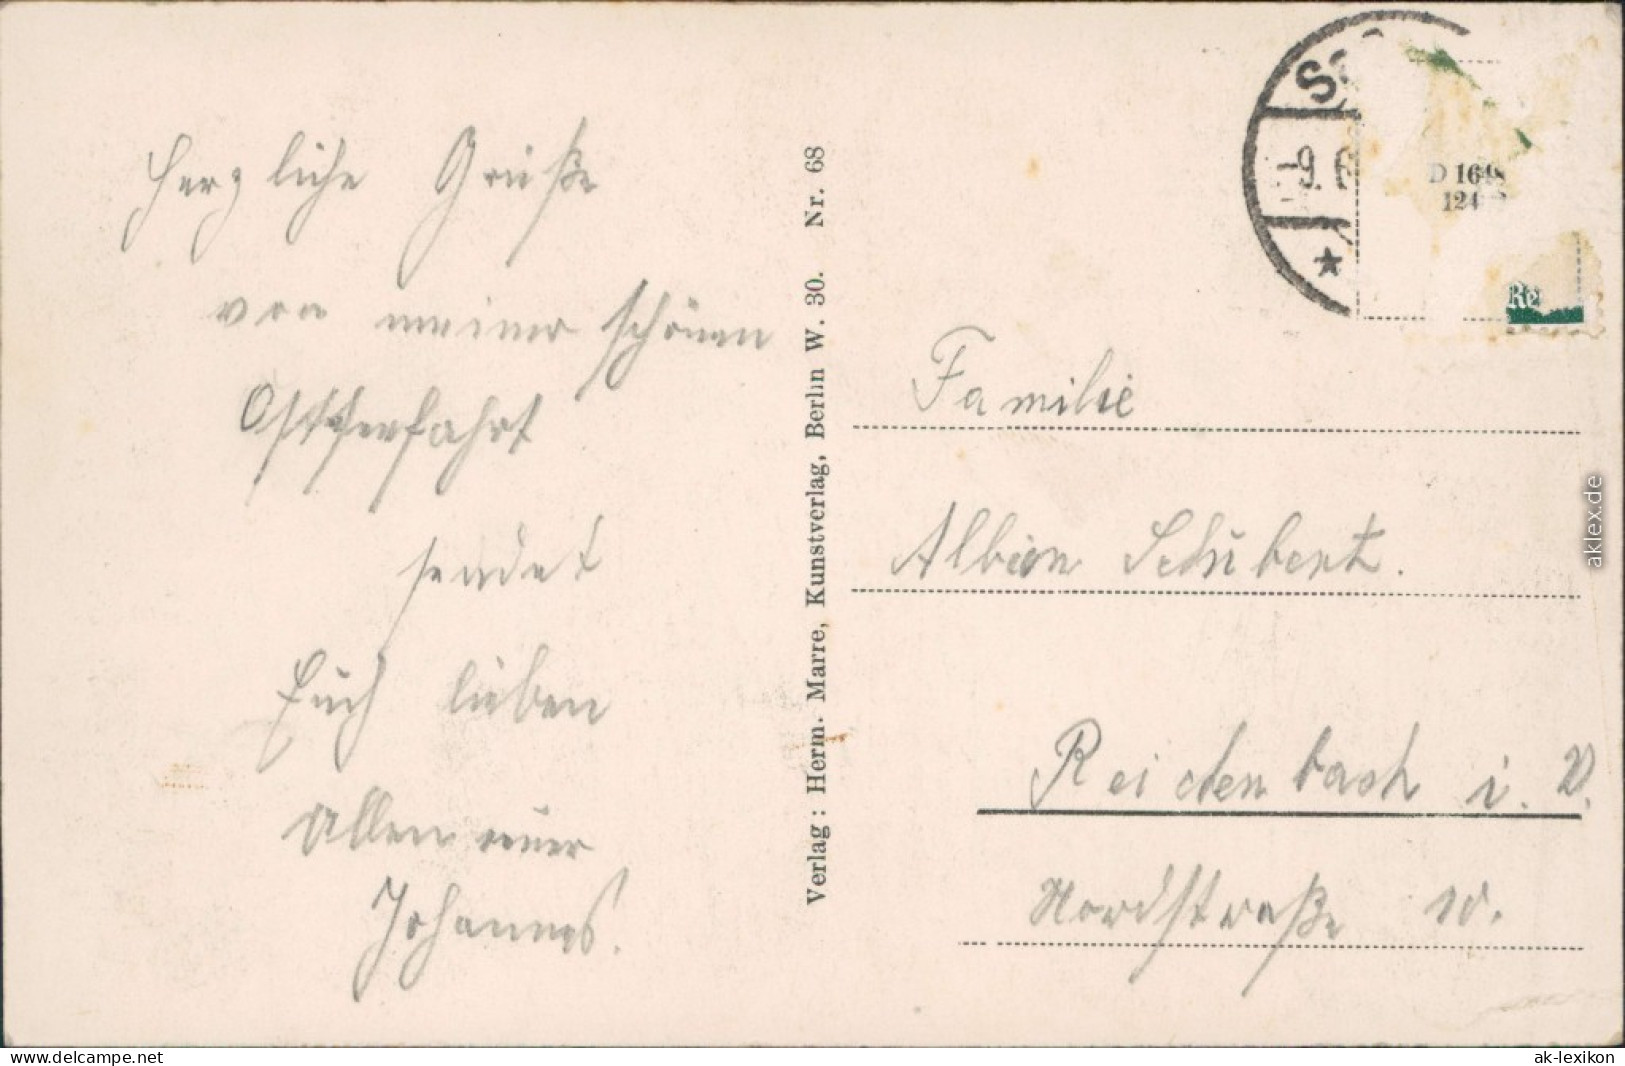 Herzliche Grüße
von meiner schönen
Ostseefahrt
sendet
Euch lieben
Allen euer
Johannes.
Verlag: Herm. Marre, Kunstverlag, Berlin W. 30. Nr. 68
-9. 6
D 1648
124
Re
Familie
Albin Schubert.
Reichenbach i. V.
Nordstraße 10.
aklex.de
www.delcampe.net
ak-lexikon